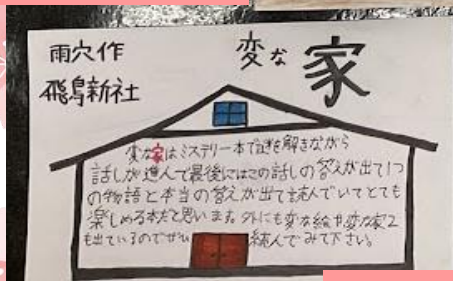 雨穴作
変な家
飛鳥新社
変な家はミステリー本で謎を解きながら
話しが進んで最後にはこの話しの答えが出て1つ
の物語と本当の答えが出て読んでいてとても
楽しめる本だと思います。外にも変な絵や変な家2
も出ているのでぜひ 読んでみて下さい。